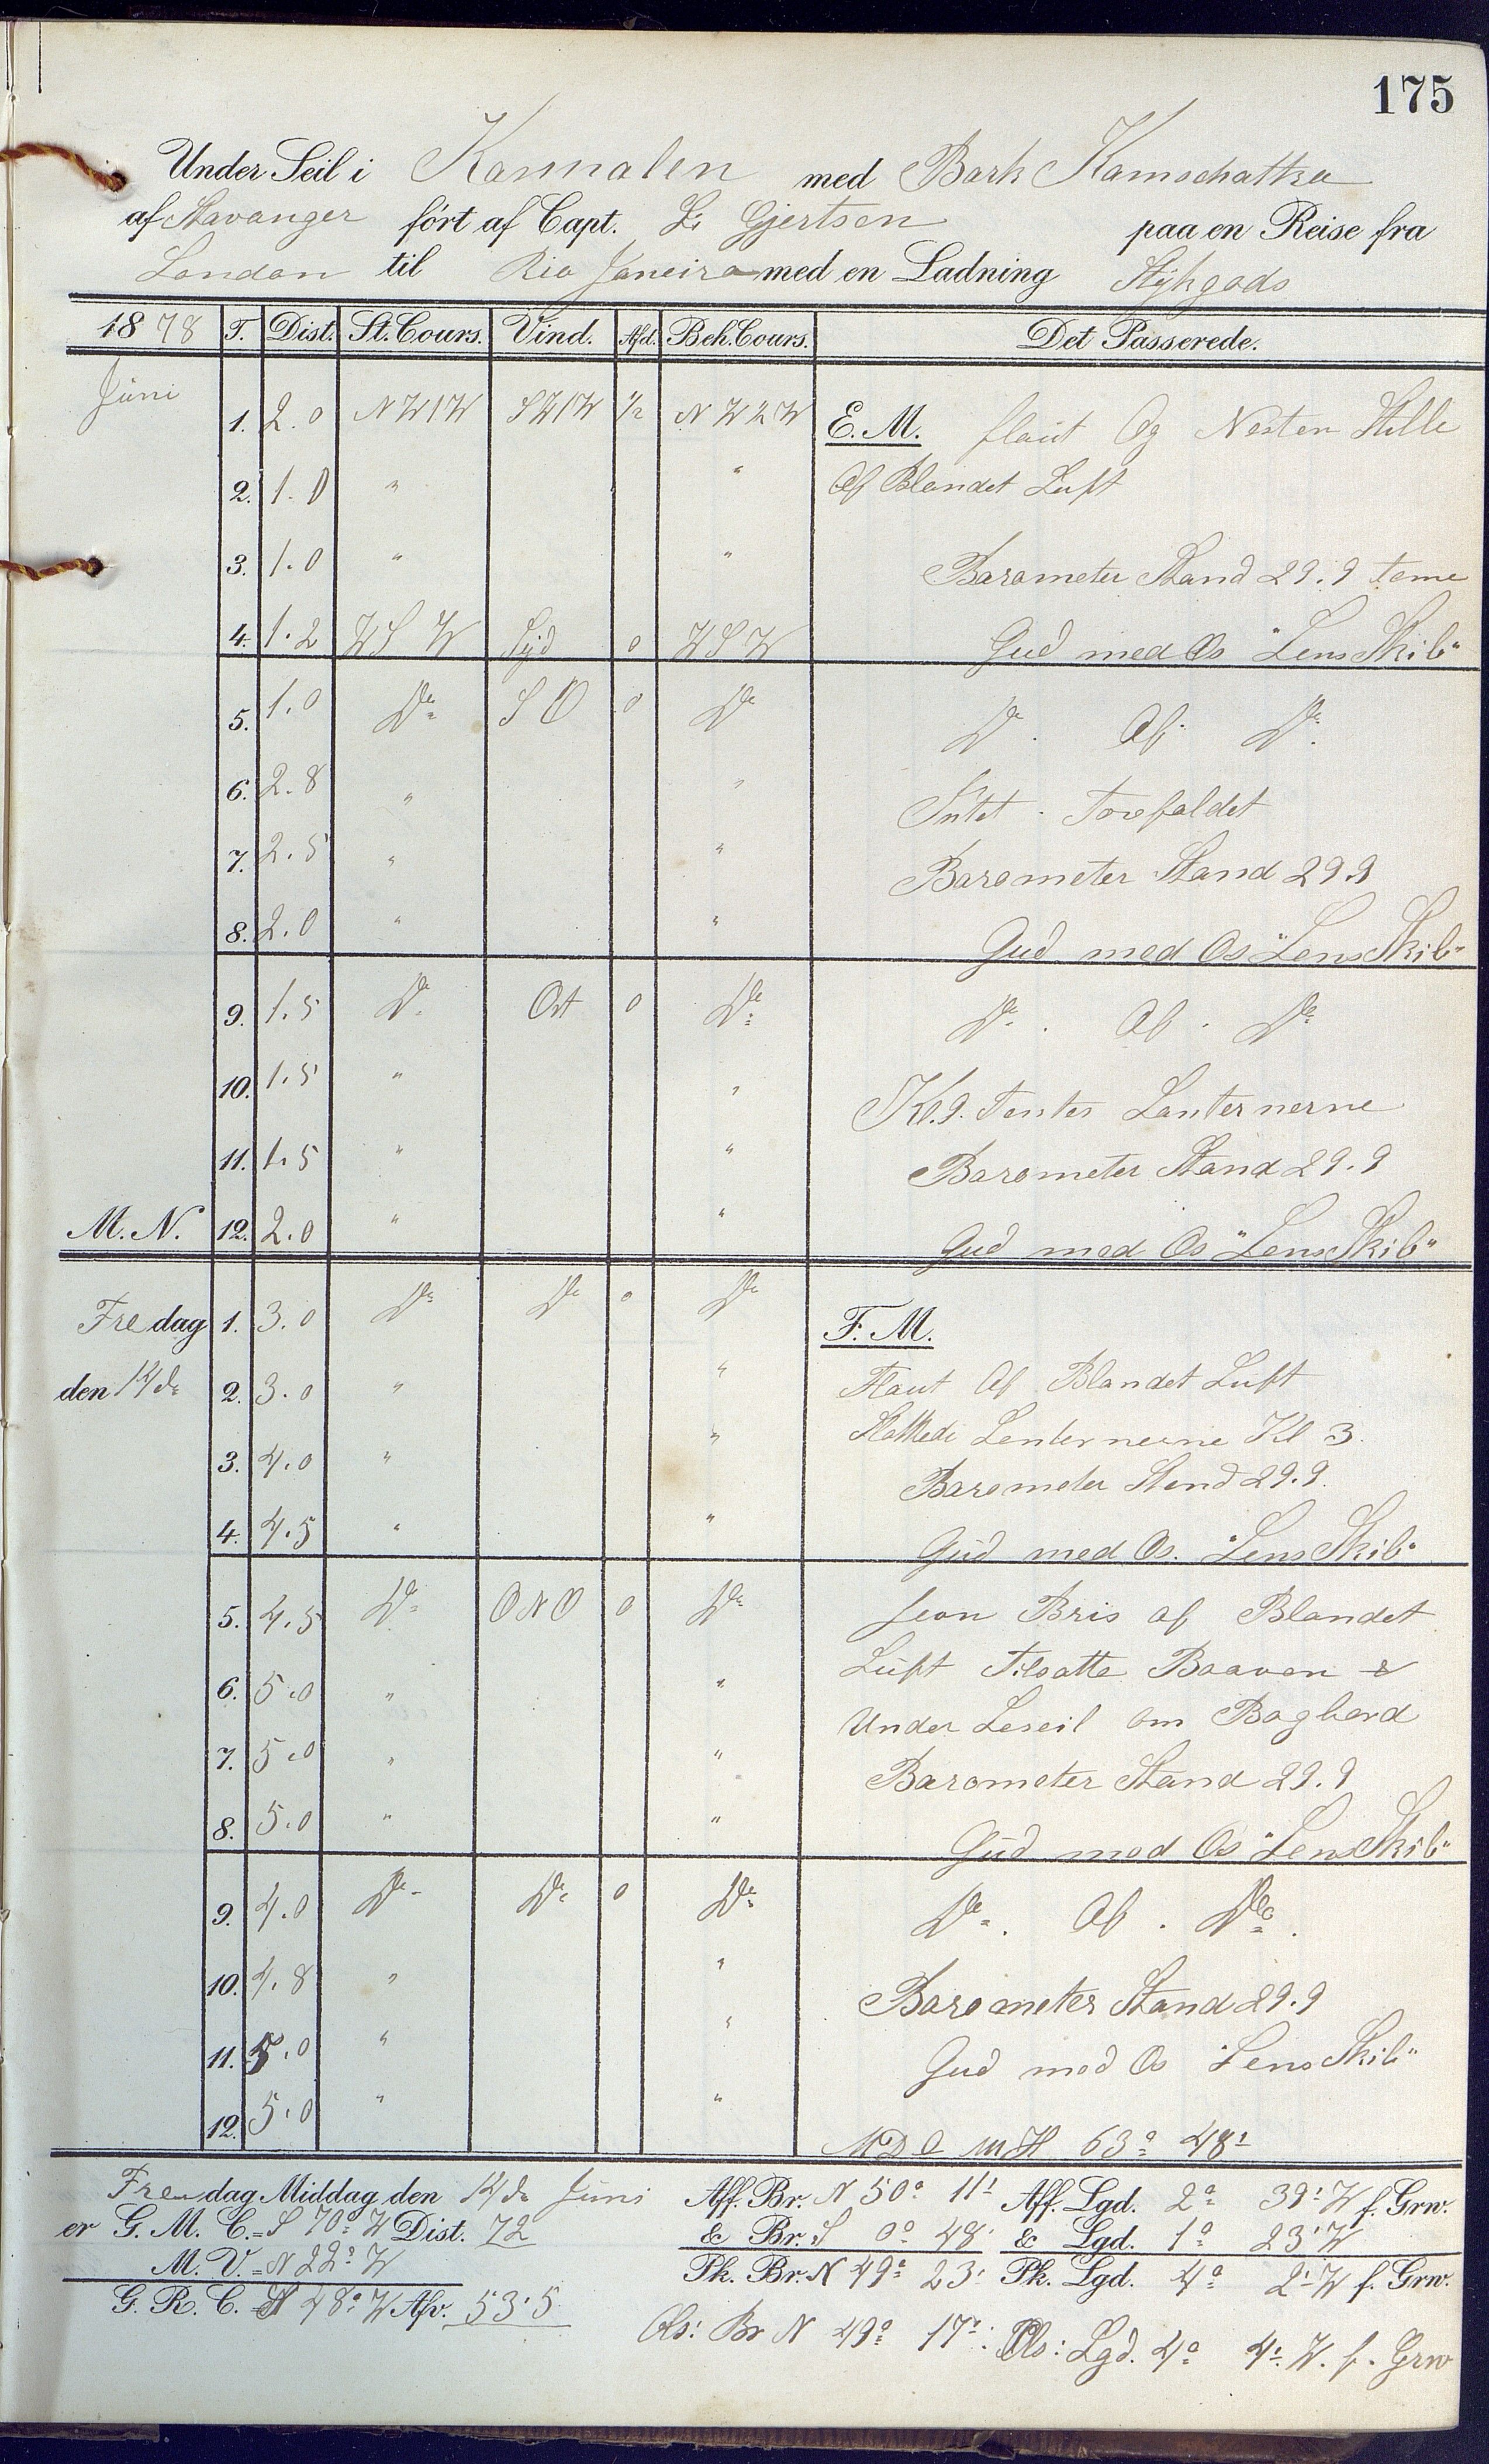 175
Under Seil i Kannalen med Bark Kamschatka
af Stavanger ført af Capt. L. Gjertsen paa en Reise fra
London til Rio Janeiro med en Ladning Stykgods
1878 T. Dist. St. Cours. Vind. Afd. Beh. Cours. Det Passerede.
Juni 1. 2.0 NW1W SW1W ½ NW2W E. M. flaut Og Nesten Stille
2. 1.0 " " Af Blandet Luft
3. 1.0 " " Barometer Stand 29.9 tome
4. 1.2 WSW Syd 0 WSW Gud med Os "Lens Skib"
5. 1.0 Do SO 0 Do Do. Af. Do.
6. 2.8 " " Intet. Forefaldet
7. 2.5 " " Barometer Stand 299
8. 2.0 " " Gud med Os "Lens Skib"
9. 1.5 Do Ost 0 Do Do. Af. Do
10. 1.5 " " Kl.9. Tentes Lanternerne
11. 1.5 " " Barometer Stand 29.9
M. N. 12. 2.0 " " Gud med Os "Lens Skib"
Fredag 1. 3.0 Do Do 0 Do F. M.
den 14de 2. 3.0 " " Flaut Af Blandet Luft
3. 4.0 " " Slokkede Lenternerne Kl 3.
Barometer Stend 29.9.
4. 4.5 " " Gud med Os. "Lens Skib"
5. 4.5 Do ONO 0 Do Jevn Bris af Blandet
6. 5.0 " " Luft Tilsatte Boaven &
Under Leseil om Bagbord
7. 5.0 " " Barometer Stand 29.9
8. 5.0 " " Gud med Os "Lens Skib"
9. 4.0 Do Do 0 Do Do. Af. Do.
10. 4.8 " " Barometer Stand 29.9
11. 5.0 " " Gud med Os "Lens Skib"
12. 5.0 " " MDO m H 63° 48'
Fredag Middag den 14de Juni Aff. Br. N 50° 11' Aff. Lgd. 2° 39' W f. Grw.
er G. M. C. = S 70° W Dist. 72 & Br. S 0° 48' & Lgd. 1° 23' W
M. V. = N 22° W Pk. Br. N 49° 23' Pk. Lgd. 4° 2' W f. Grw.
G. R. C. = S 48° W Afv. 53'5
Obs: Br N 49° 17': Obs: Lgd. 4° 4' W. f. Grw